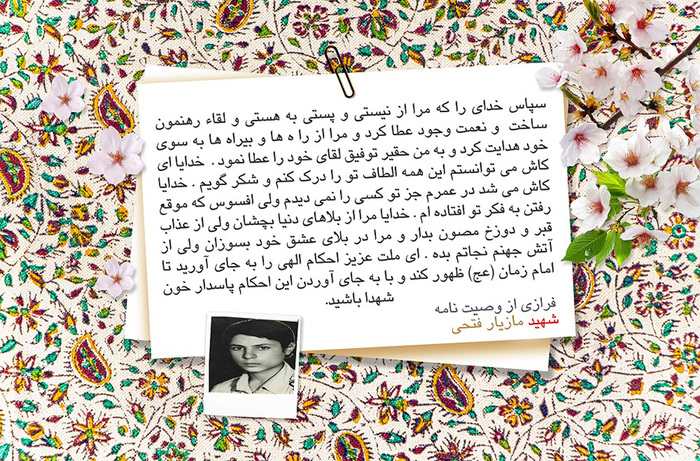 سپاس خدای را که مرا از نیستی و پستی به هستی و لقاء رهنمون
ساخت و نعمت وجود عطا کرد و مرا از را ه ها و بیراه ها به سوی
خود هدایت کرد و به من حقیر توفیق لقای خود را عطا نمود . خدایا ای
کاش می توانستم این همه الطاف تو را درک کنم و شکر گویم . خدایا
کاش می شد در عمرم جز تو کسی را نمی دیدم ولی افسوس که موقع
رفتن به فکر تو افتاده ام . خدایا مرا از بلاهای دنیا بچشان ولی از عذاب
قبر و دوزخ مصون بدار و مرا در بلای عشق خود بسوزان ولی از
آتش جهنم نجاتم بده . ای ملت عزیز احکام الهی را به جای آورید تا
امام زمان (عج) ظهور کند و با به جای آوردن این احکام پاسدار خون
شهدا باشید.
فرازی از وصیت نامه
شهید مازیار فتحی